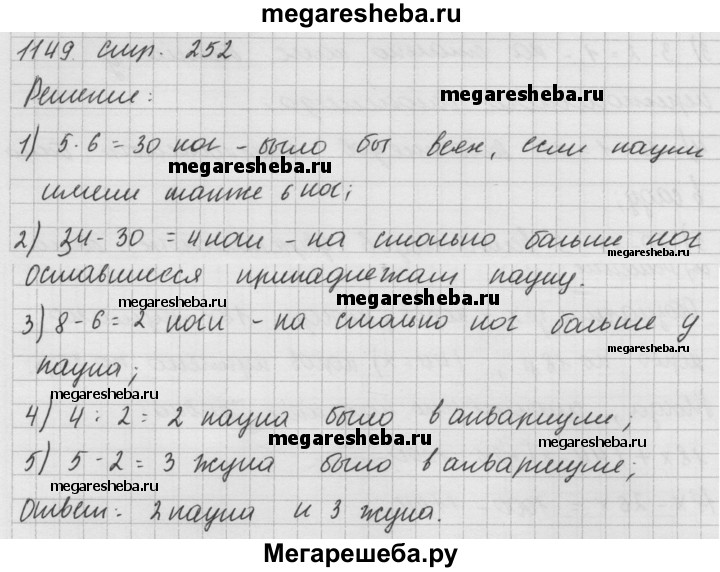 megaresheba.ru
1149 стр. 252
Решение:
megaresheba.ru
1) 5·6 = 30 ног – было бы всех, если пауки
megaresheba.ru
имели также 6 ног;
2) 34 - 30 = 4 ноги – на столько больше ног
megaresheba.ru
оставшиеся принадлежат пауку.
megaresheba.ru megaresheba.ru
3) 8 - 6 = 2 ноги – на столько ног больше у
megaresheba.ru
паука;
megaresheba.ru
4) 4 : 2 = 2 паука было в аквариуме;
megaresheba.ru megaresheba.ru
5) 5 - 2 = 3 жука было в аквариуме;
megaresheba.ru
Ответ: 2 паука и 3 жука.
megaresheba.ru
Мегарешеба.ру